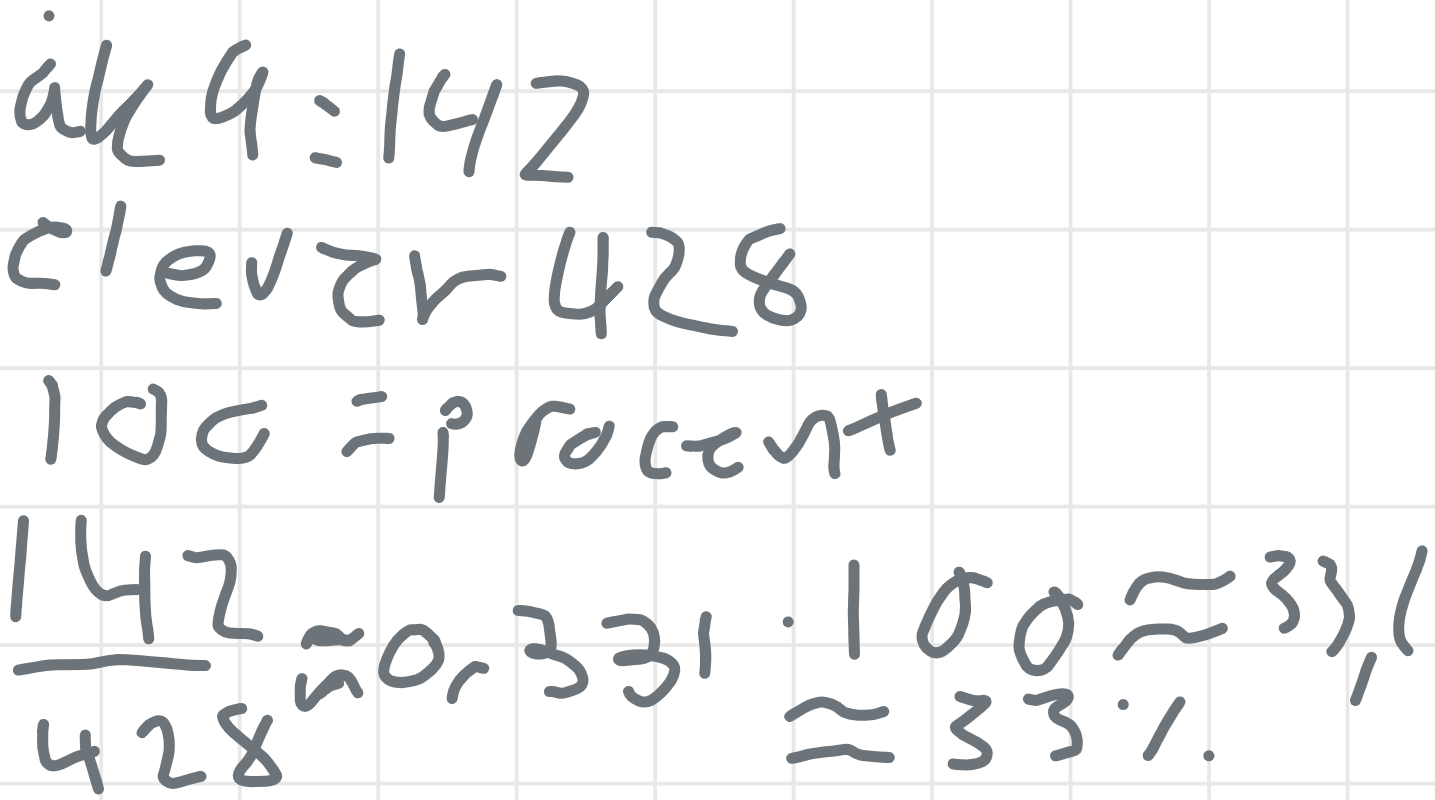 åk 9 = 142
elever 428
100 = procent
142/428 ≈ 0,331 · 100 ≈ 33,1
≈ 33 %.